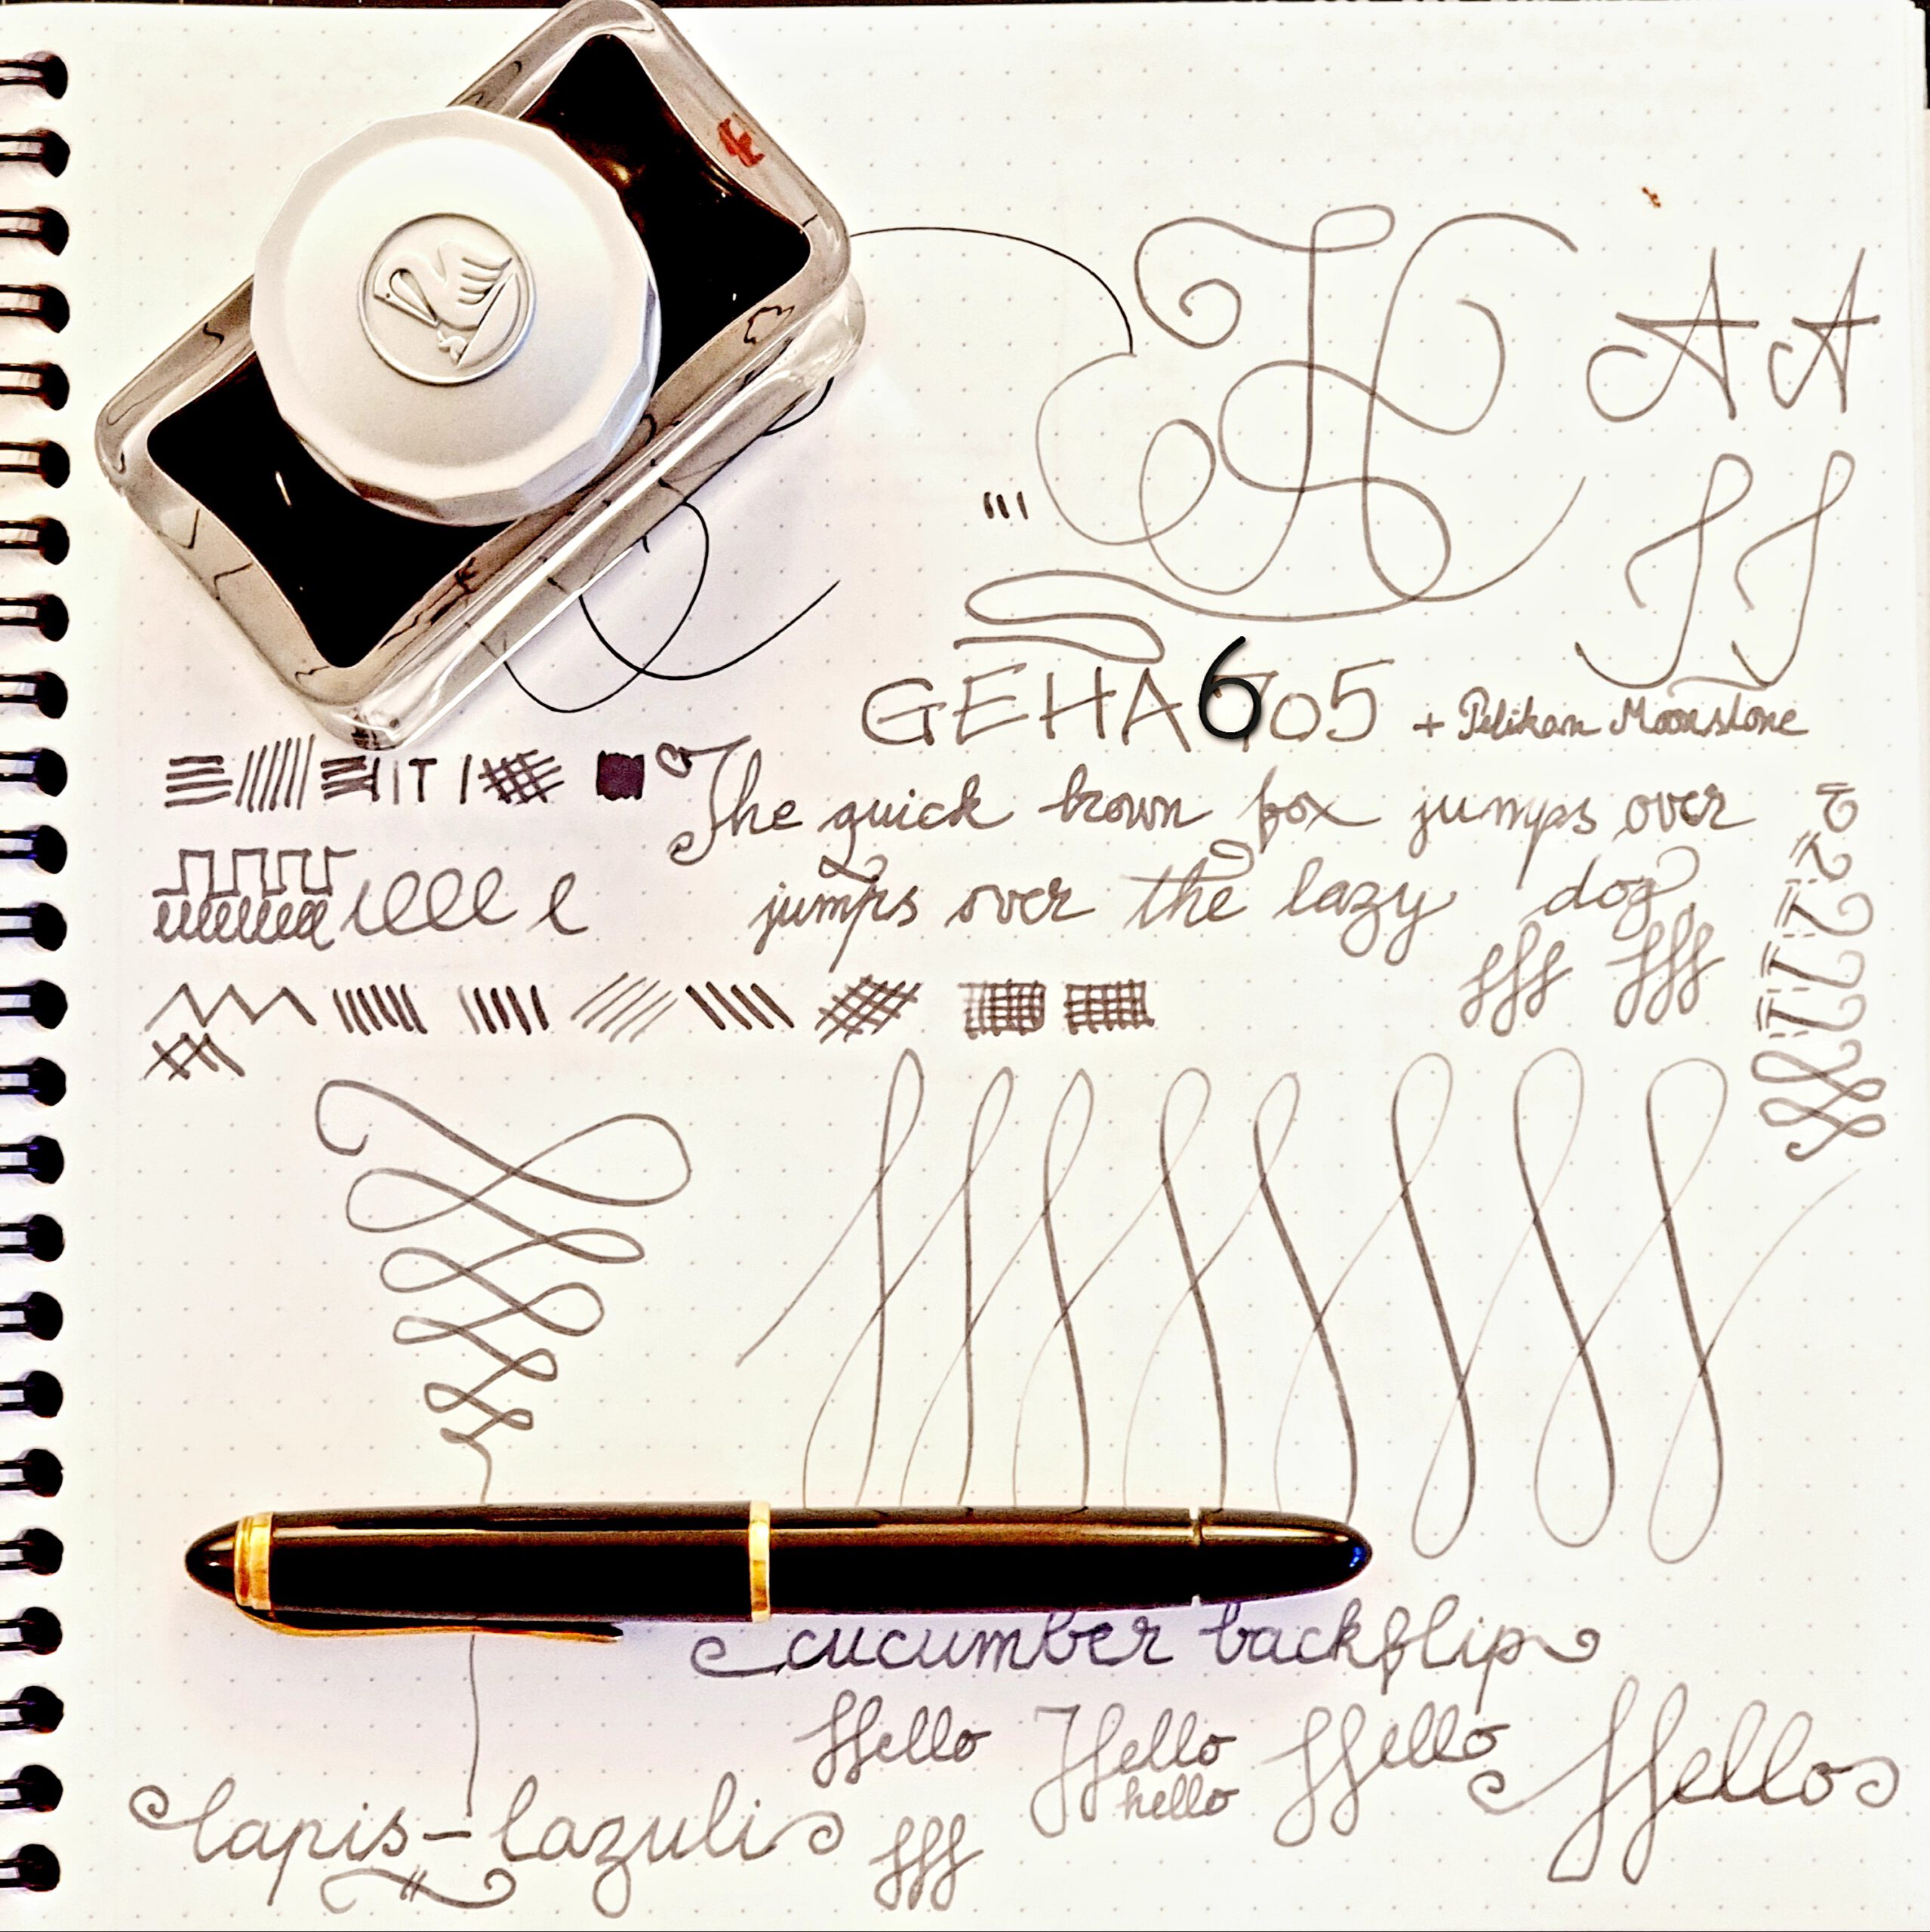 H A A
GEHA 605 + Pelikan Moonstone
The quick brown fox jumps over
jumps over the lazy dog
cucumber backflip
Hello Hello Hello Hello
hello
lapis-lazuli fff